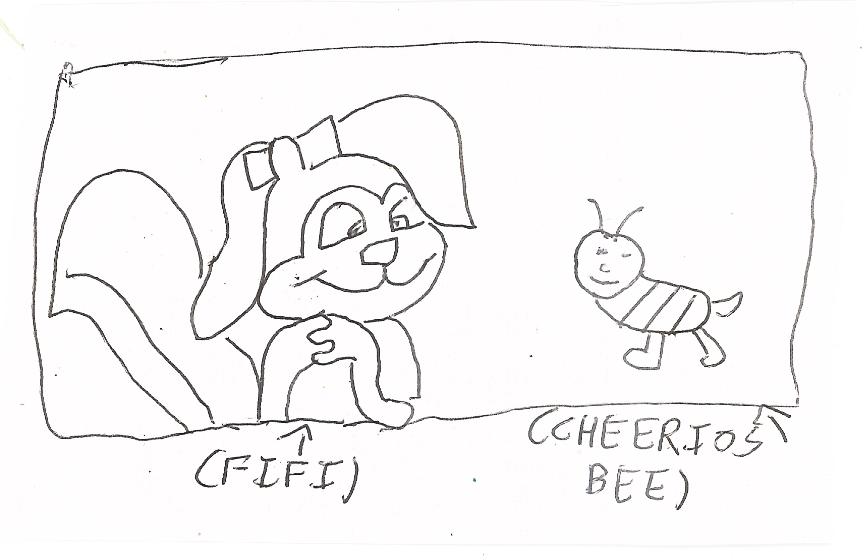 (FIFI)
(CHEERIOS
BEE)